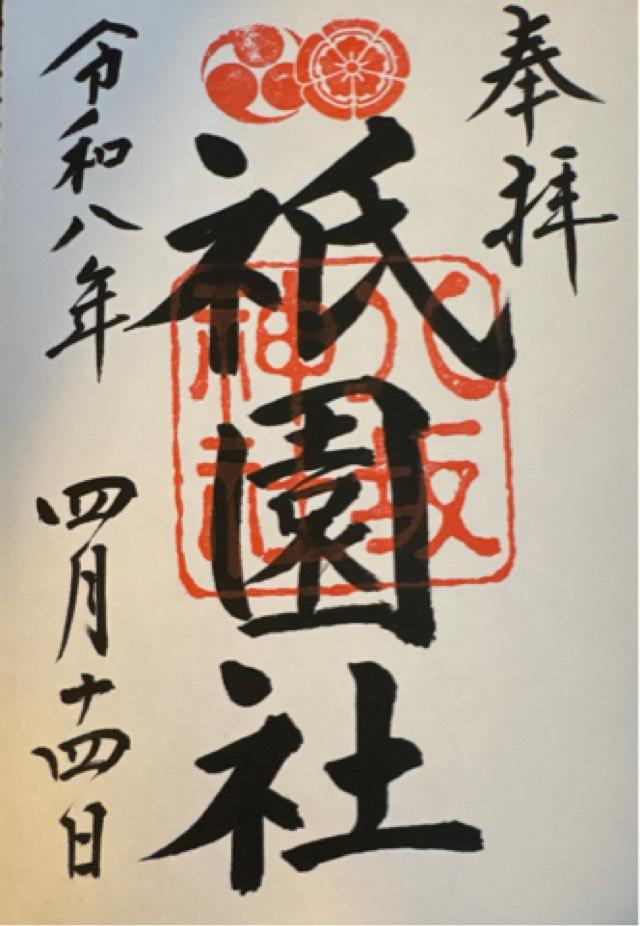 奉拝
祇園社
八坂神社
令和八年四月十四日